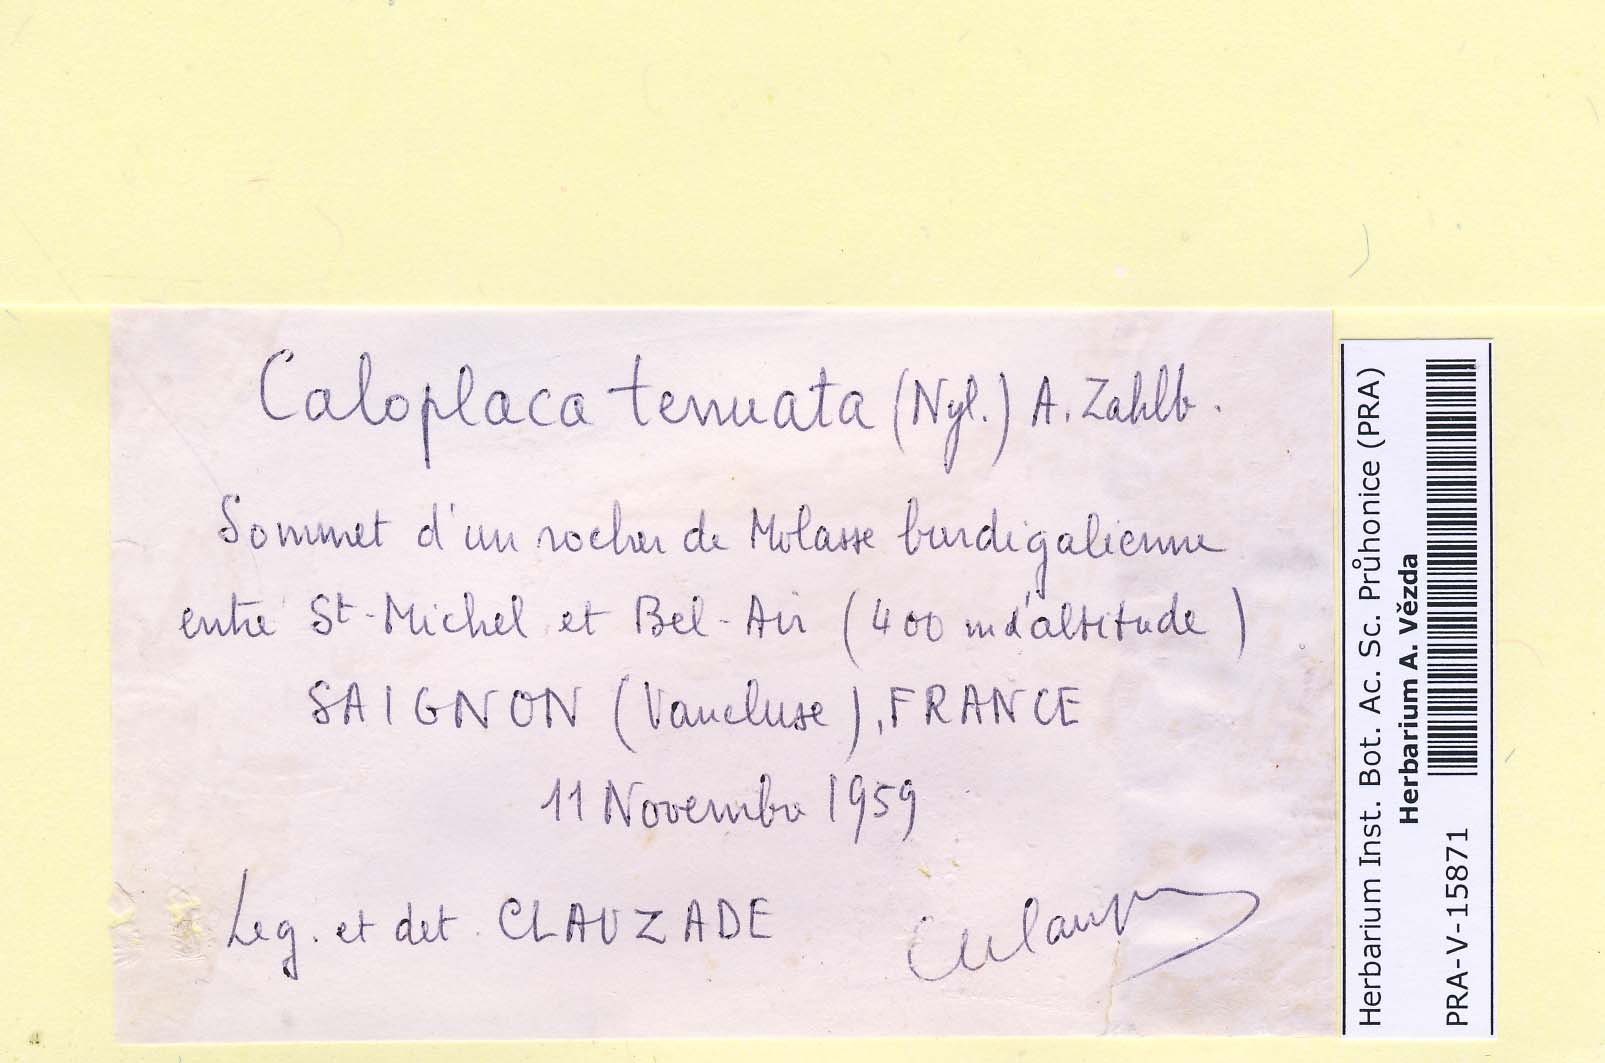 Caloplaca tenuata (Nyl.) A. Zahlb.
Sommet d'un rocher de Molasse burdigalienne
entre St-Michel et Bel-Air (400 m d'altitude)
SAIGNON (Vaucluse), FRANCE
11 Novembre 1959
Leg. et det. CLAUZADE
Herbarium Inst. Bot. Ac. Sc. Průhonice (PRA)
Herbarium A. Vězda
PRA-V-15871